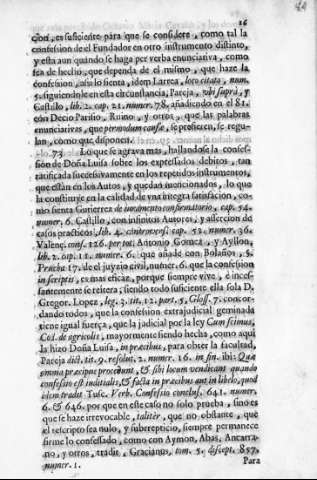 16
cion, es suficiente para que se considere, como tal la
confesion de el Fundador en otro instrumento distinto,
y esta aun quando se haga por verba enunciativa, como
sea de hecho, que dependa de el mismo, que haze la
confesion, assi lo sienta, idem Larrea, loco citato, num.
5. siguiendole en esta circunstancia, Pareja, ubi suprà, y
Castillo, lib. 2. cap. 21. numer. 78. añadiendo en el 81.
con Decio Parisio, Ruino, y otros, que las palabras
enunciativas, que per modum causæ, se profieren, se regu-
lan, como que disponen.
73 Lo que se agrava mas, hallandose la confes-
sion de Doña Luisa sobre los expressados debitos, tan
ratificada successivamente en los repetidos instrumentos,
que estàn en los Autos, y quedan mencionados, lo que
la constituye en la calidad de una integra satisfacion, co-
mo sienta Gutierrez de iuramento confirmatorio, cap. 54.
numer. 6. Castillo, con infinitos Autores, y asseccion de
casos practicos, lib. 4. controvers. cap. 52. numer. 36.
Valenç. cons. 126. per tot. Antonio Gomez, y Ayllon,
lib. 2. cap. 11. numer. 6. que añade con Bolaños, 5.
Prueba 17. de el juyzio civil, numer. 6. que la confession
in scriptis, es mas eficaz, porque siempre vive, è inces-
santemente se reitera; siendo todo suficiente ella sola D.
Gregor. Lopez, leg. 3. tit. 12. part. 5. Gloss. 7. concor-
dando todos, que la confession extrajudicial geminada
tiene igual fuerça, que la judicial por la ley Cum scimus,
Cod. de agricolis, mayormente siendo hecha, como aqui
la hizo Doña Luisa, in præcibus, para obter la facultad,
Pareja dict. tit. 9. resolut. 2. numer. 16. in fin. ibi: Quæ
omnia præcipuè procedunt, & sibi locum vendicant quando
confesio est iuditialis, & facta in præcibus aut in libelo, quod
etiam tradit Tusc. Verb. Confesio conclus. 641. numer.
6. & 646. por que en este caso no solo prueba, sino es
que se haze irrevocable, taliter, que no obstante, que
el rescripto sea nulo, y subrepticio, siempre permanece
firme lo confessado, como con Aymon, Abas, Ancarra-
no, y otros, tradit, Gracianus, tom. 5. discept. 857.
numer. 1.
Para